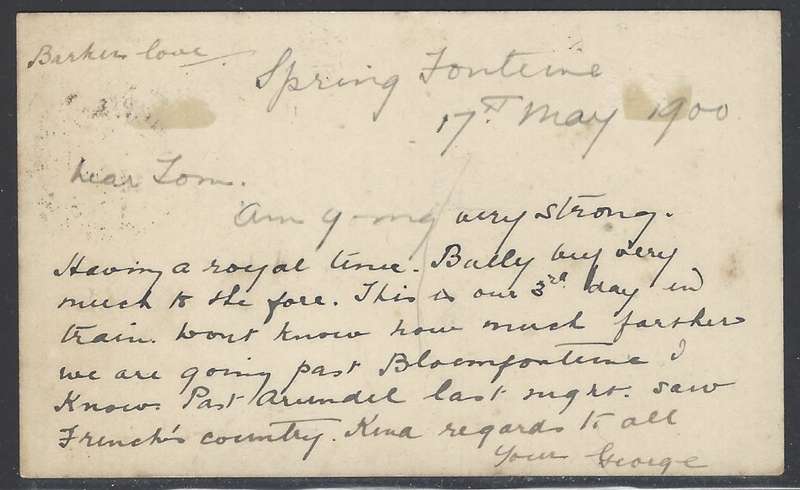 Barkers love
Spring Fonteine
17th May 1900
Dear Tom.
Am going very strong.
Having a royal time. Bully beef very
much to the fore. This is our 3rd day in
train. Wont know how much farther
we are going past Bloemfonteine I
know. Past Arundel last night. Saw
French's country. Kind regards to all
Yours George